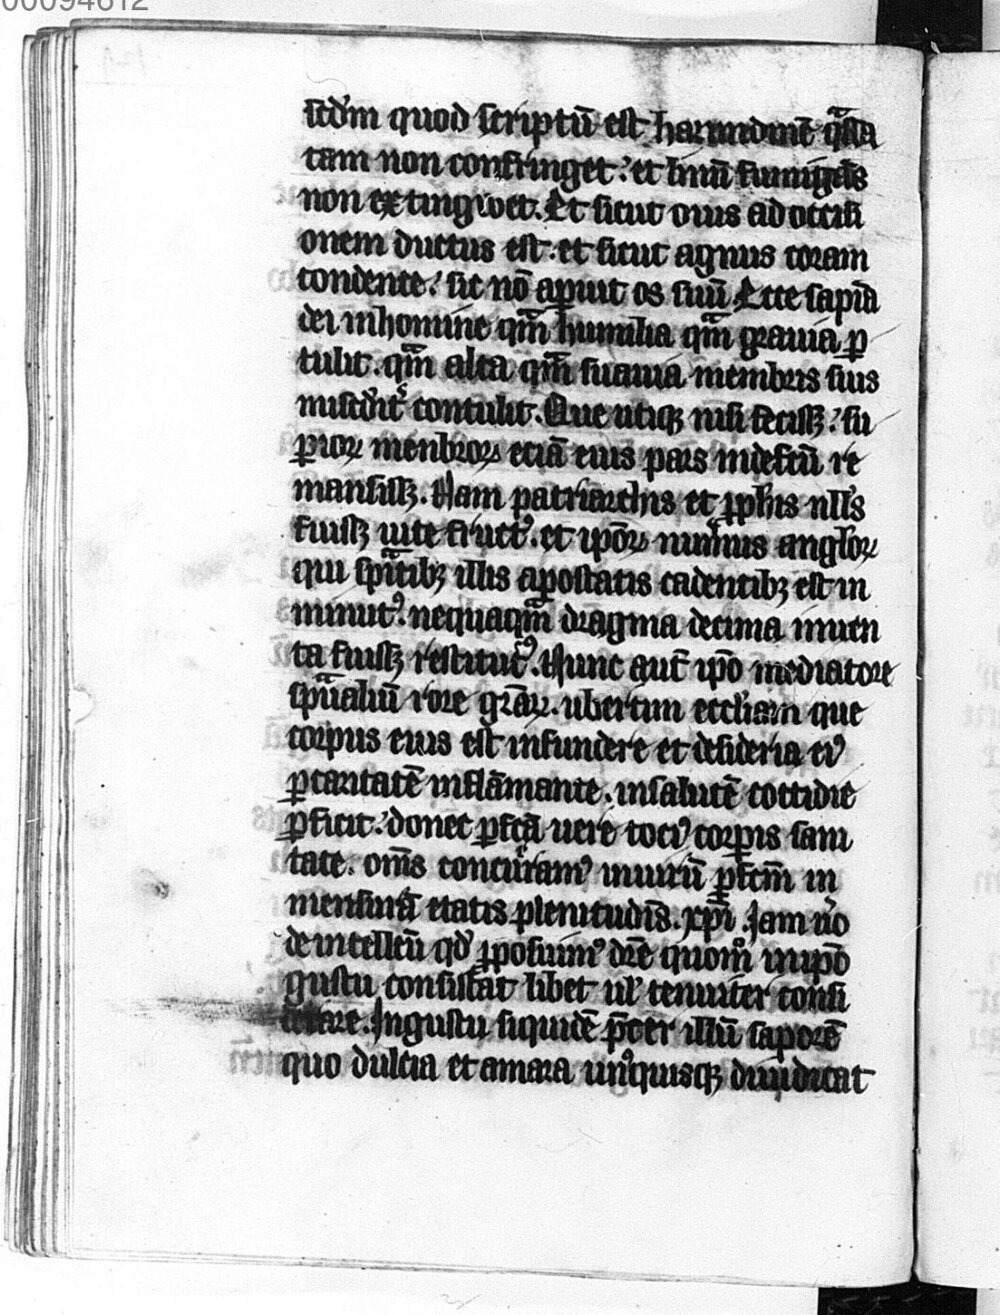 00094612
scd'm quod scriptū est harundinē q̄ssa
tam non confringet. et linū fumigās
non extinguet. Et sicut ouis ad occisi
onem ductus est. et sicut agnus coram
tondente. sic nō aperuit os suū. Ecce sapīa
dei in homine qm̄ humilia qm̄ grauia ꝑ
tulit. qm̄ alta qm̄ suauia membris suis
contulit. Que utiqꝫ nisi fecissꝫ. su
ꝑioꝝ menbroꝝ eciā eius pars in defcū re
mansissꝫ. Nam patriarchis et ꝓphis nll's
fuissꝫ uite fruct᾽. et ipōꝝ num̄us angloꝝ
qui sp̄itibꝫ illis apostatis cadentibꝫ est in
minut᾽. nequaqm̄ dragma decima inuen
ta fuissꝫ restitut᾽. Nunc aut̄ ipō mediatore
sp̄ualiū rore grāꝝ. ubertim eccliam que
corpus eius est infundere et desideria ei᾽
ꝑ caritatē inflāmante. in salutē cottidie
ꝑficit. donec ꝑfcā uere toci᾽ corpis sani
tate. om̄s concurram᾽ in uirū ꝑfcm̄ in
mensurā etatis plenitudīs. xp̄i. Jam u̇o
de intellcū qd᾽ ꝓposuim᾽ dr̄e quom̊ in ipō
gustu consistat libet ul᾽ tenuiter consi
derare. In gustu siquidē illū saporē
quo dulcia et amara un᾽quisqꝫ diiudicat